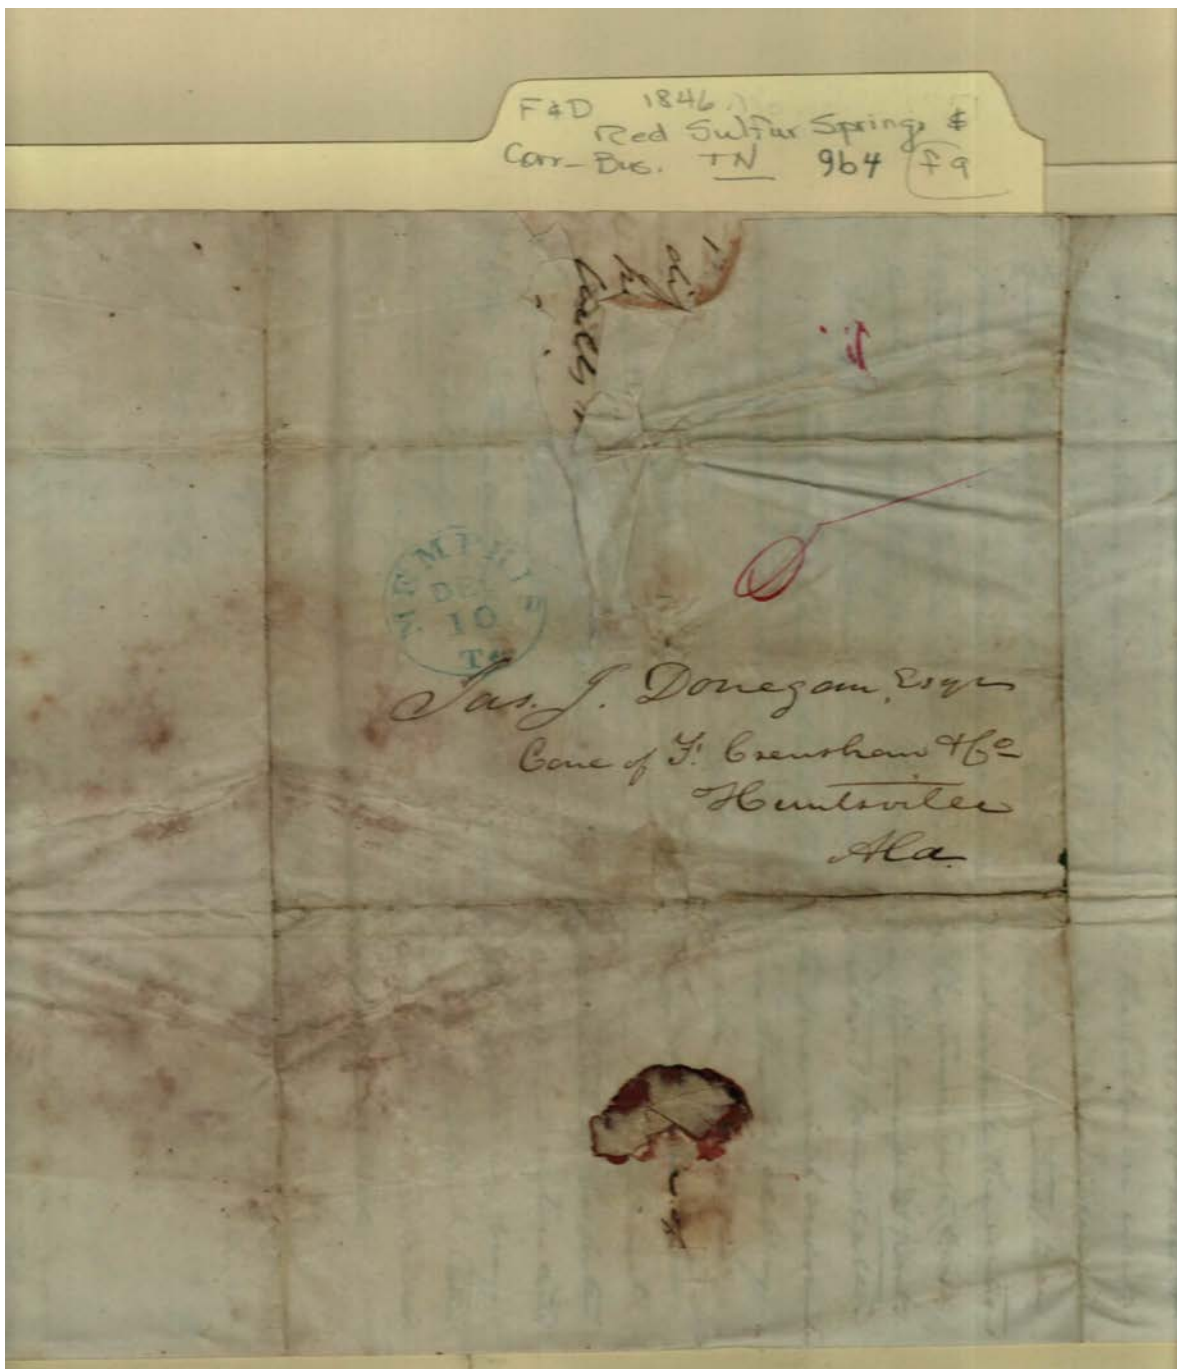 F&D 1846
Red Sulfur Springs &
Corr-Bus. TN 964 F9
MEMPHIS
DEC
10
Te
Jas. J. Donegan, Esqr
Care of F. Crenshaw & Co
Huntsville
Ala.